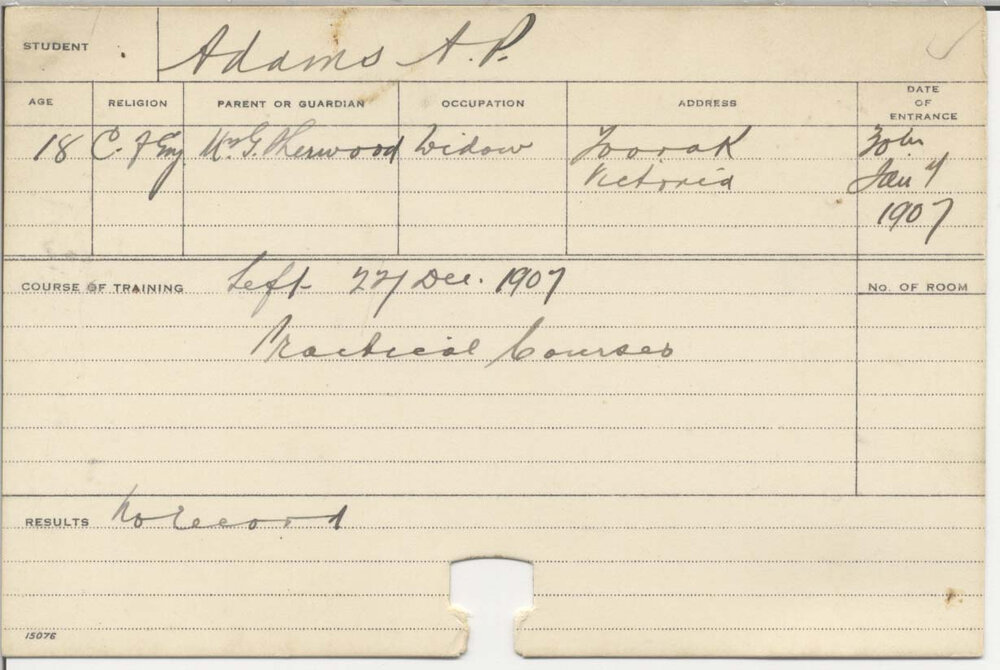 STUDENT Adams A.P.
AGE RELIGION PARENT OR GUARDIAN OCCUPATION ADDRESS DATE OF ENTRANCE
18 C. of Eng Mrs G. Sherwood Widow Toorak
Victoria Jan 7
1907
COURSE OF TRAINING Left 22/ Dec. 1907 No. OF ROOM
Practical Courses
RESULTS No record
15076